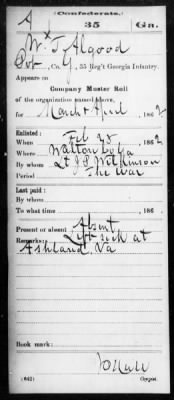 (Confederate.)
A 35 Ga.
Wm J. Algood
Pvt, Co. G, 35 Reg't Georgia Infantry.
Appears on
Company Muster Roll
of the organization named above,
for March & April, 1862
Enlisted:
When Feb 25, 1862
Where Walton Co Ga
By whom Lt J S Wilkinson
Period The War
Last paid:
By whom
To what time , 186 .
Present or absent Absent
Remarks: Left sick at
Ashland, Va
Book mark:
(642) Copyist.